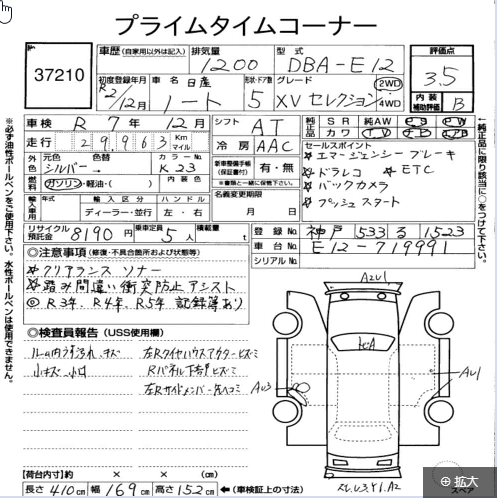 プライムタイムコーナー
No. 37210
車歴(自家用以外は記入) 排気量 1200 型式 DBA-E12 評価点 3.5
初度登録年月 R2/12月 車名 日産 ノート 形状・ドア数 5 グレード XV セレクション 2WD 4WD 内装補助評価 B
車検 R 7年 12月 シフト AT 純正品 純AW
走行 29,963 Km マイル 冷房 AAC 社品 カワ TV
外色 元色 シルバー → 色替 カラーNo. K23 セールスポイント
燃料 ガソリン・軽油・( ) 内装色
新車整備手帳(保証書付) 有・無
※書類と一緒に保管下さい。
☆エマージェンシーブレーキ
☆ドラレコ ☆ETC
☆バックカメラ
☆プッシュスタート
輸入車用 年式 輸入区分 ディーラー・並行 ハンドル 左・右 名義変更期限 月 日
リサイクル預託金 8190円 乗車定員 5人 積載量 t
登録No. 神戸 533 る 1523
車台No. E12-719991
シリアルNo.
◎注意事項(修復・不具合箇所および状態等)
☆クリアランスソナー
☆踏み間違い衝突防止アシスト
◎R3年、R4年、R5年 記録簿あり
◎検査員報告(USS使用欄)
ルーム内うす汚れ、キズ
小キズ 小凹
左Rタイヤハウスアウターヒズミ
Rパネル下部ヒズミ
左Rサイドメンバー先ヘコミ
AZU1
AU3
AU1
【荷台内寸】約 × × (cm)
長さ 410cm 幅 169cm 高さ 152cm ←(車検証上の寸法)
スペア
※必ず油性ボールペンをご使用下さい。水性ボールペンは使用できません。
←純正品に限り該当に○をつけて下さい。
拡大